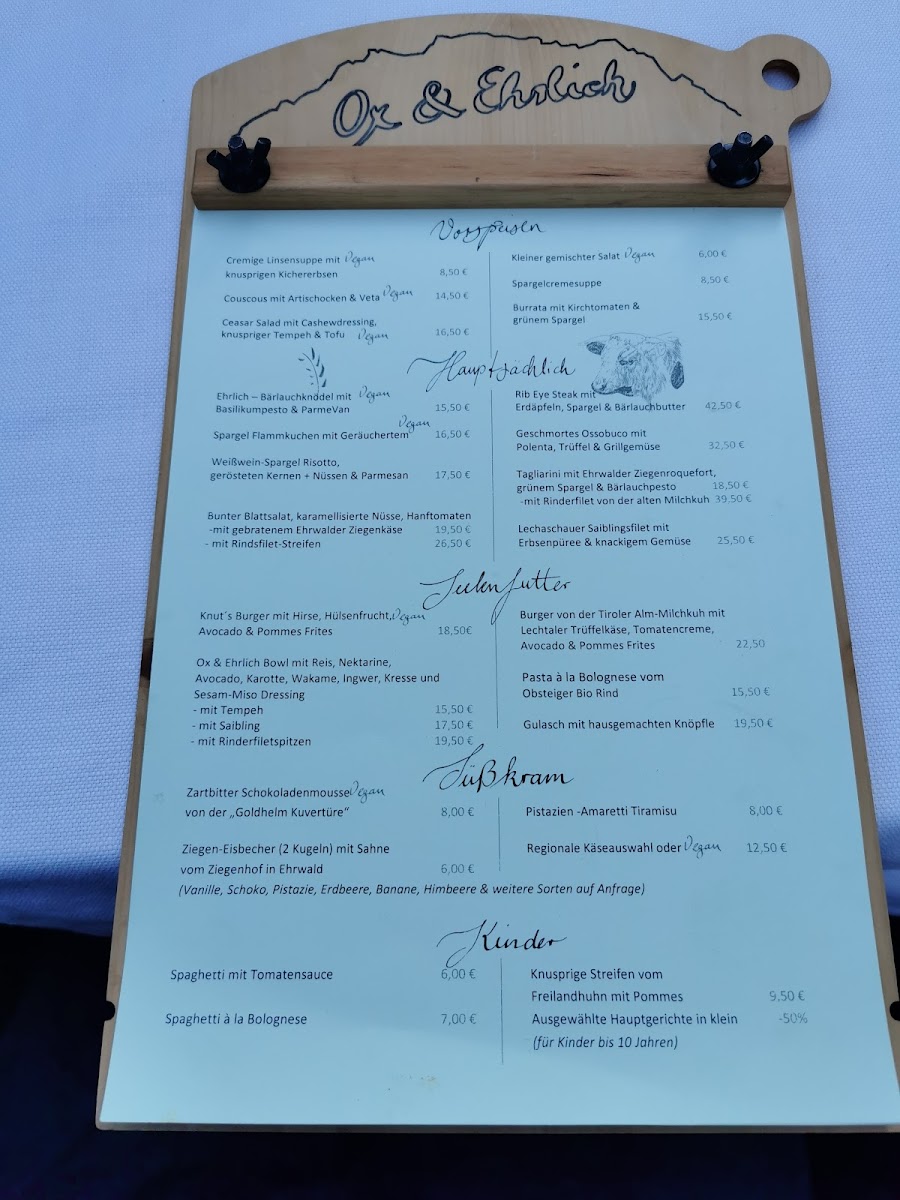 Ox & Ehrlich
Vorspeisen
Cremige Linsensuppe mit Vegan
knusprigen Kichererbsen 8,50 €
Couscous mit Artischocken & Veta Vegan 14,50 €
Ceasar Salad mit Cashewdressing,
knuspriger Tempeh & Tofu Vegan 16,50 €
Kleiner gemischter Salat Vegan 6,00 €
Spargelcremesuppe 8,50 €
Burrata mit Kirchtomaten &
grünem Spargel 15,50 €
Hauptsächlich
Ehrlich – Bärlauchknödel mit Vegan
Basilikumpesto & ParmeVan 15,50 €
Vegan
Spargel Flammkuchen mit Geräuchertem 16,50 €
Weißwein-Spargel Risotto,
gerösteten Kernen + Nüssen & Parmesan 17,50 €
Bunter Blattsalat, karamellisierte Nüsse, Hanftomaten
-mit gebratenem Ehrwalder Ziegenkäse 19,50 €
- mit Rindsfilet-Streifen 26,50 €
Rib Eye Steak mit
Erdäpfeln, Spargel & Bärlauchbutter 42,50 €
Geschmortes Ossobuco mit
Polenta, Trüffel & Grillgemüse 32,50 €
Tagliarini mit Ehrwalder Ziegenroquefort,
grünem Spargel & Bärlauchpesto 18,50 €
-mit Rinderfilet von der alten Milchkuh 39,50 €
Lechaschauer Saiblingsfilet mit
Erbsenpüree & knackigem Gemüse 25,50 €
Seelenfutter
Knut´s Burger mit Hirse, Hülsenfrucht, Vegan
Avocado & Pommes Frites 18,50€
Ox & Ehrlich Bowl mit Reis, Nektarine,
Avocado, Karotte, Wakame, Ingwer, Kresse und
Sesam-Miso Dressing
- mit Tempeh 15,50 €
- mit Saibling 17,50 €
- mit Rinderfiletspitzen 19,50 €
Burger von der Tiroler Alm-Milchkuh mit
Lechtaler Trüffelkäse, Tomatencreme,
Avocado & Pommes Frites 22,50
Pasta à la Bolognese vom
Obsteiger Bio Rind 15,50 €
Gulasch mit hausgemachten Knöpfle 19,50 €
Süßkram
Zartbitter Schokoladenmousse Vegan
von der „Goldhelm Kuvertüre“ 8,00 €
Ziegen-Eisbecher (2 Kugeln) mit Sahne
vom Ziegenhof in Ehrwald 6,00 €
(Vanille, Schoko, Pistazie, Erdbeere, Banane, Himbeere & weitere Sorten auf Anfrage)
Pistazien -Amaretti Tiramisu 8,00 €
Regionale Käseauswahl oder Vegan 12,50 €
Kinder
Spaghetti mit Tomatensauce 6,00 €
Spaghetti à la Bolognese 7,00 €
Knusprige Streifen vom
Freilandhuhn mit Pommes 9,50 €
Ausgewählte Hauptgerichte in klein -50%
(für Kinder bis 10 Jahren)